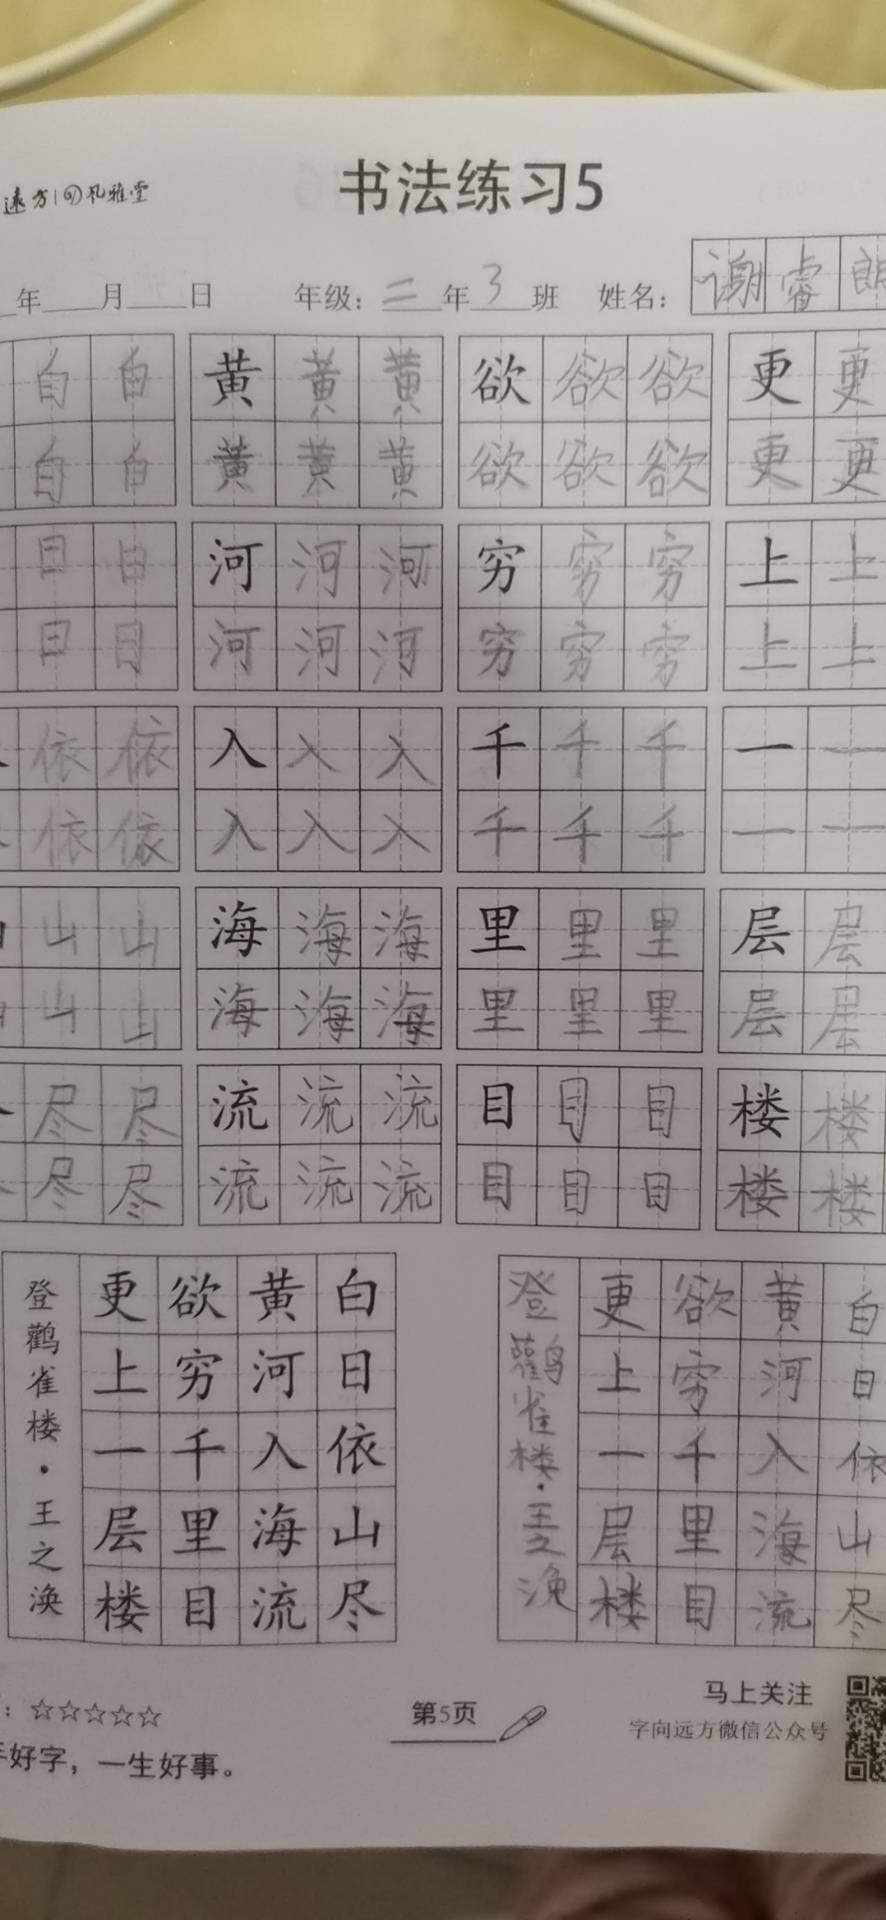 书法练习5
年 月 日 年级：二年3班 姓名：谢睿朗
白 白 黄 黄 黄 欲 欲 欲 更 更
白 白 黄 黄 黄 欲 欲 欲 更 更
日 日 河 河 河 穷 穷 穷 上 上
日 日 河 河 河 穷 穷 穷 上 上
依 依 入 入 入 千 千 千 一 一
依 依 入 入 入 千 千 千 一 一
山 山 海 海 海 里 里 里 层 层
山 山 海 海 海 里 里 里 层 层
尽 尽 流 流 流 目 目 目 楼 楼
尽 尽 流 流 流 目 目 目 楼 楼
白日依山尽
黄河入海流
欲穷千里目
更上一层楼
登鹳雀楼·王之涣
白日依山尽
黄河入海流
欲穷千里目
更上一层楼
登鹳雀楼·王之涣
：☆☆☆☆☆
手好字，一生好事。
第5页
马上关注
字向远方微信公众号